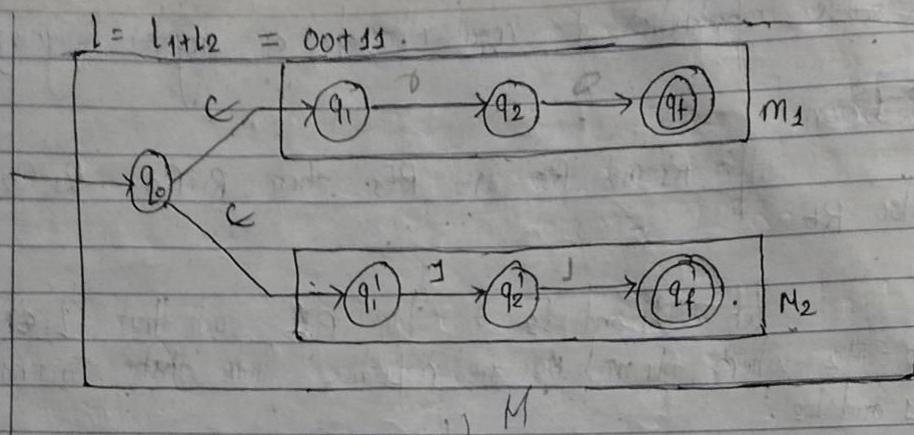 l = l1+l2 = 00+11.
ε q1 0 q2 0 qf M1
q0
ε
q1' 1 q2' 1 qf' M2
M